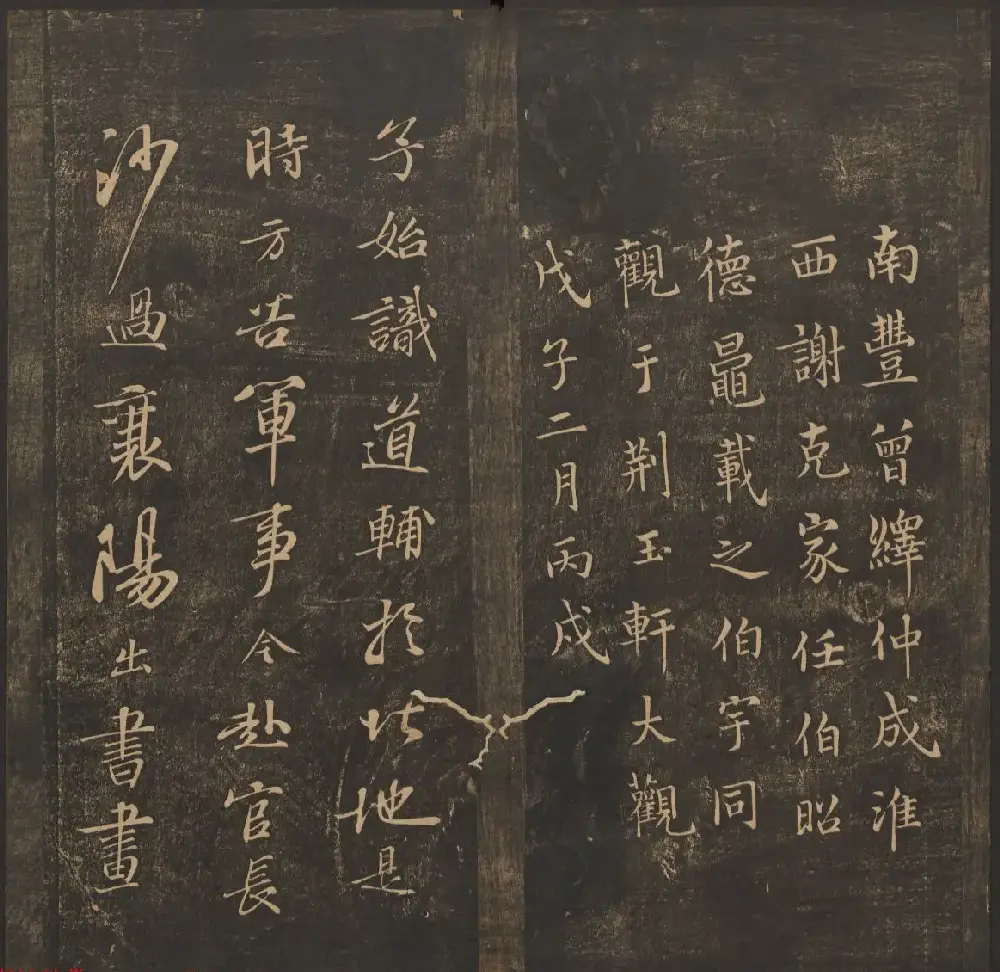 南豐曾繹仲成淮
西謝克家任伯昭
德鼂載之伯宇同
觀于荆玉軒大觀
戊子二月丙戌
予始識道輔於此地是
時方苦軍事今赴官長
沙過襄陽出書畫